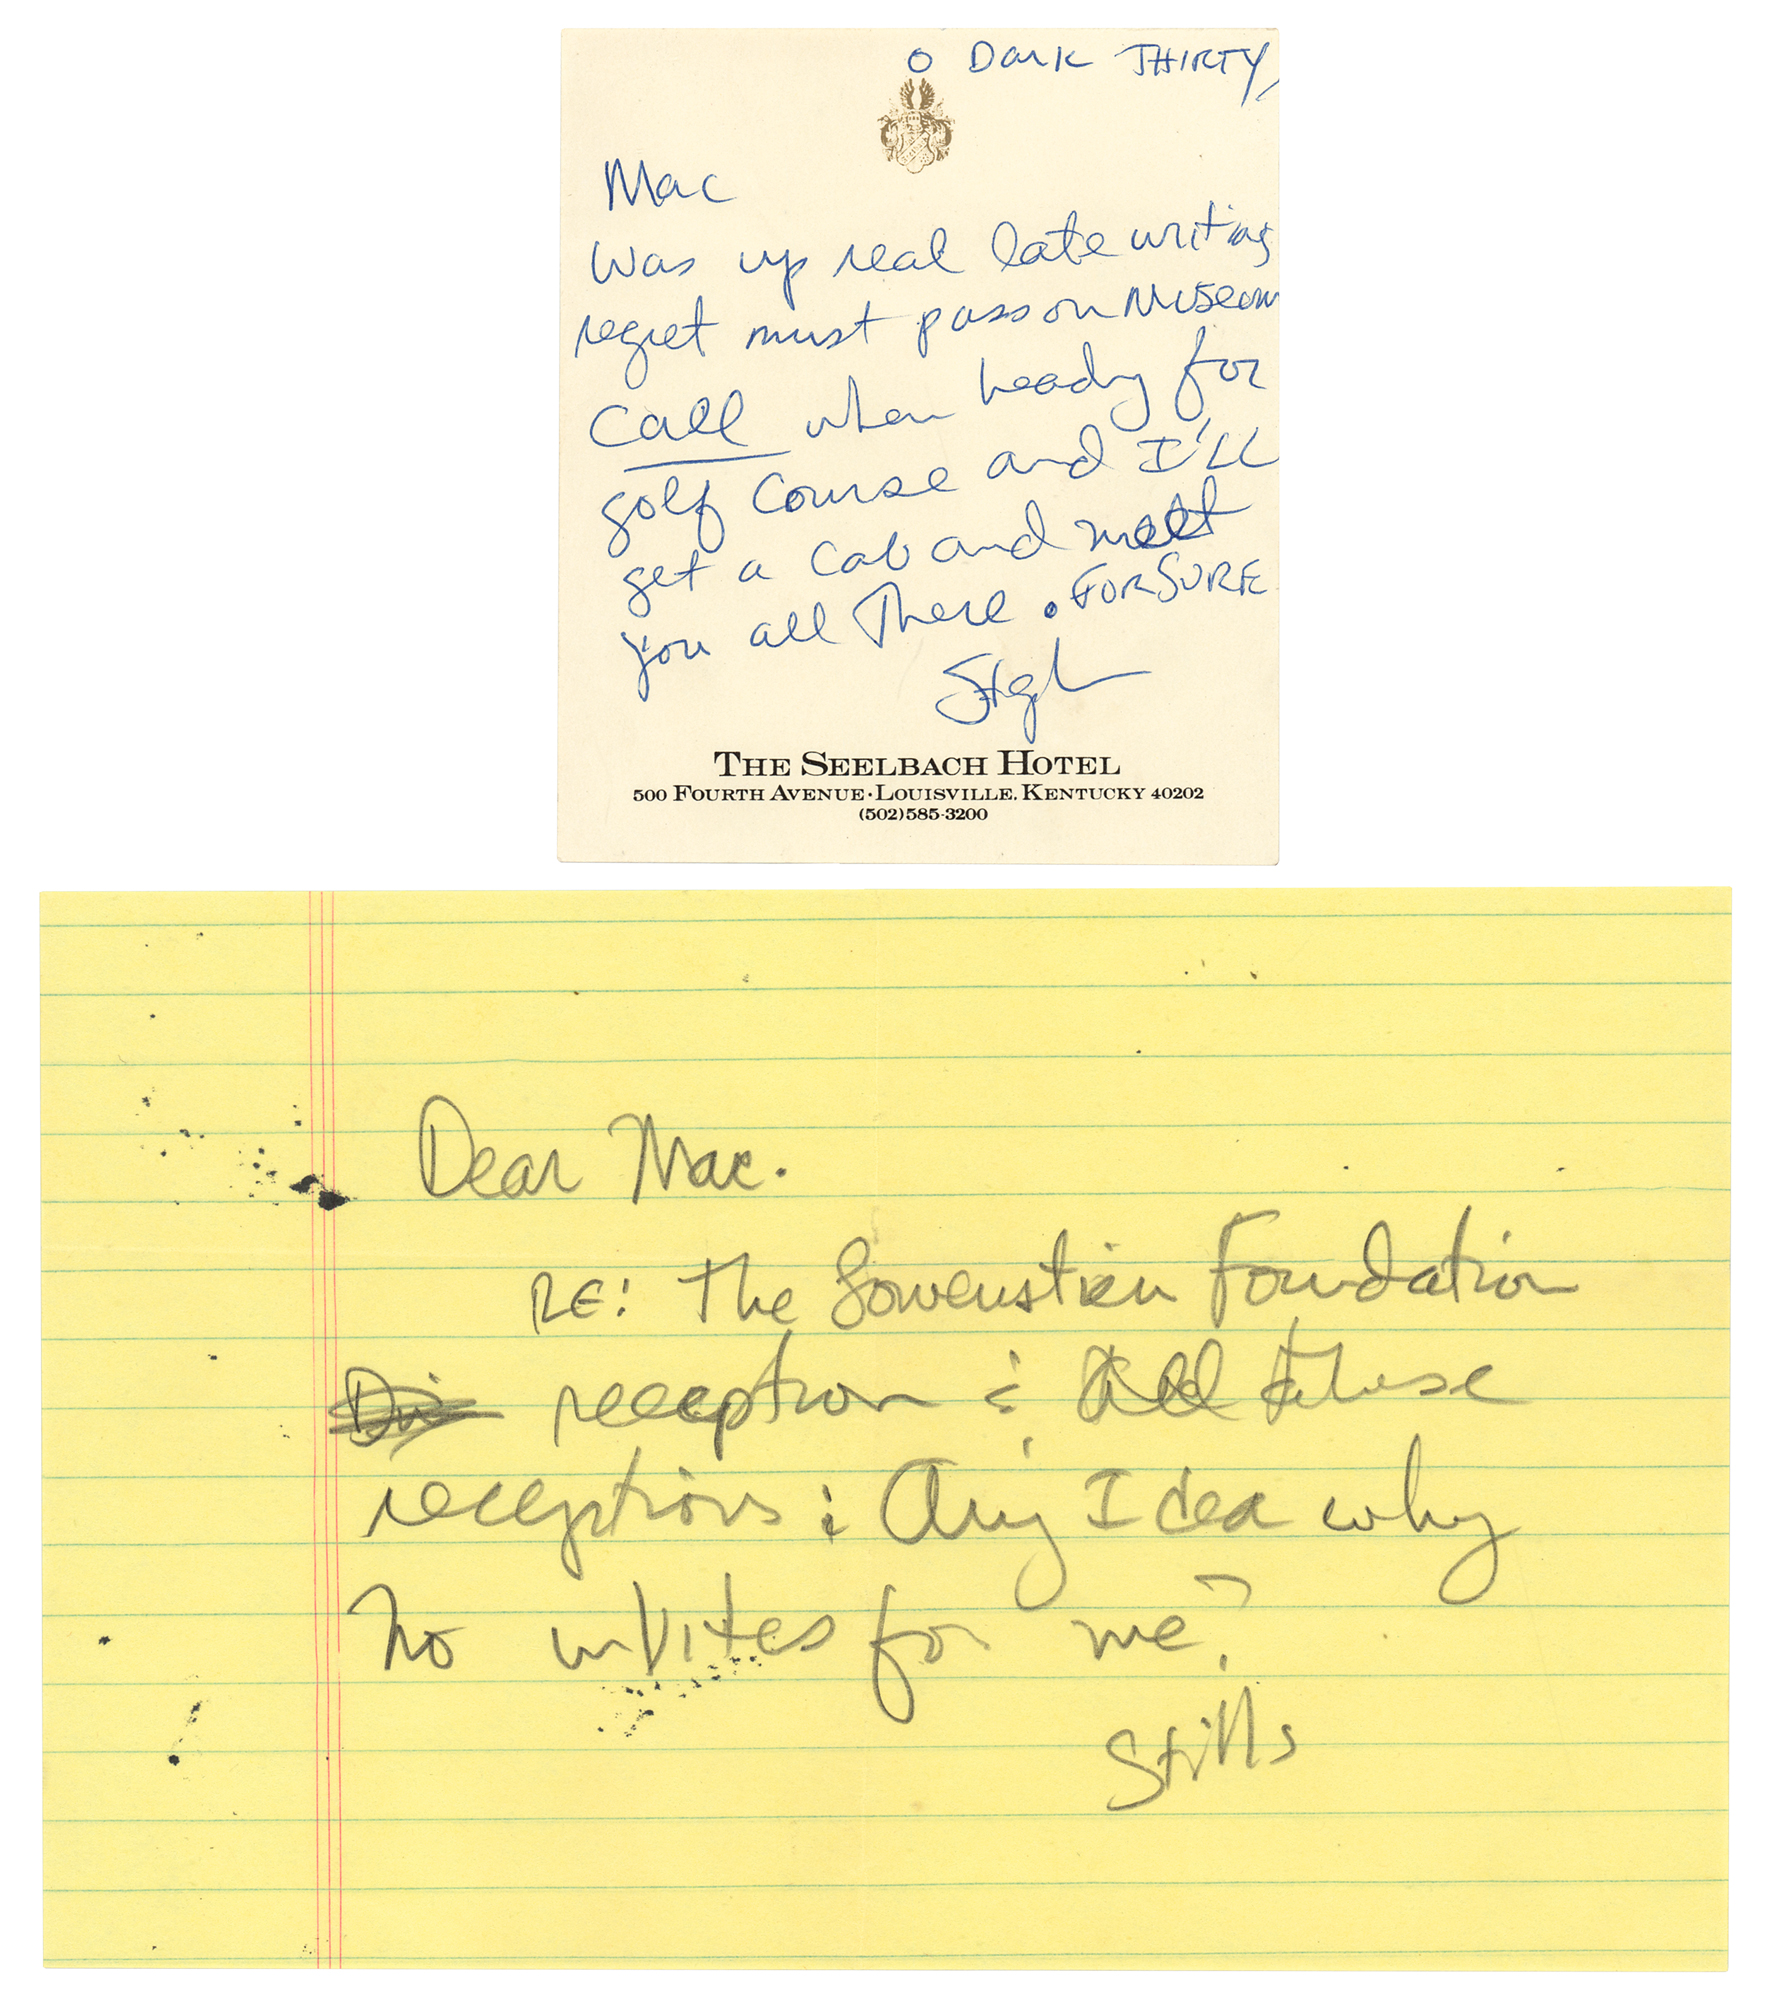 O Dark THIRTY
Mac
Was up real late writing
regret must pass on Museum
Call when heading for
golf course and I'LL
get a cab and meet
you all There. FOR SURE
THE SEELBACH HOTEL
500 FOURTH AVENUE · LOUISVILLE, KENTUCKY 40202
(502) 585-3200
Dear Mac.
RE: The Lowenstien Foundation
reception & All these
receptions: Any Idea why
No invites for me?
Stills